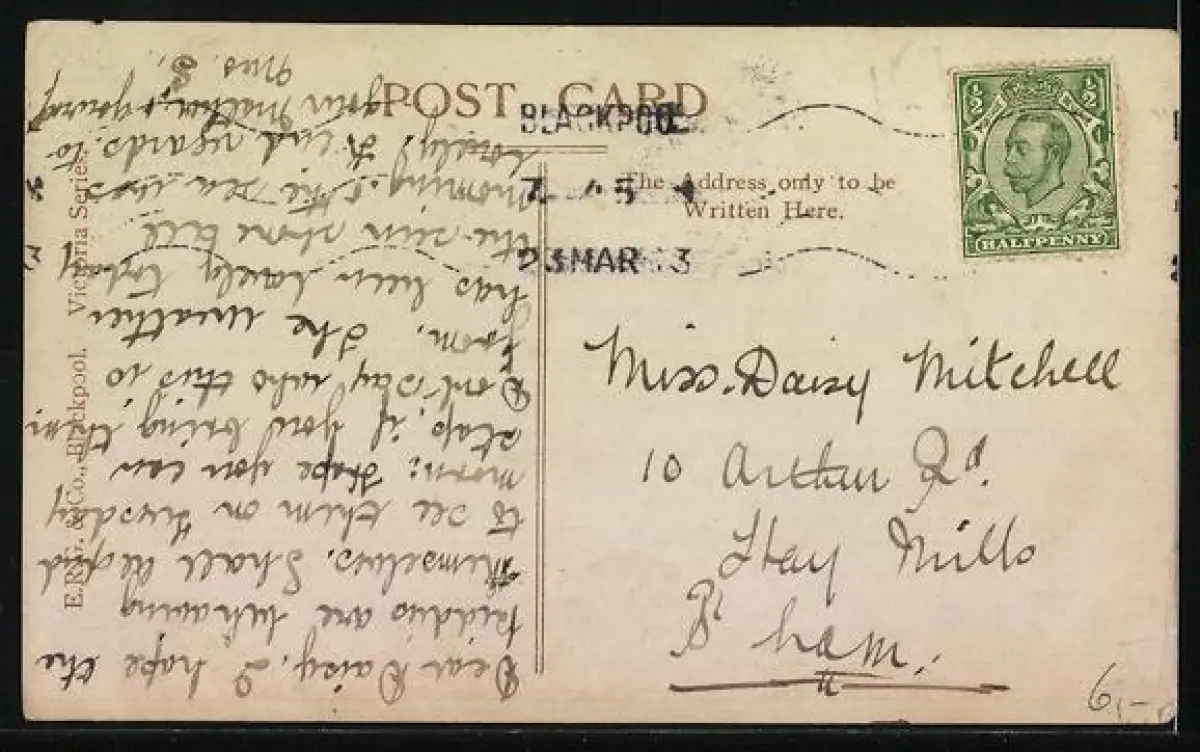 POST CARD
BLACKPOOL
The Address only to be
Written Here.
7 15
23 MAR 13
½ ½
HALFPENNY
Miss. Daisy Mitchell
10 Arthur Rd.
Hay Mills
B'ham.
6/-
E.R.G. & Co., Blackpool. Victoria Series.
Dear Daisy, I hope the
kiddies are behaving
themselves. Shall be glad
to see them on Tuesday
morn: Hope you can
stop, if you bring them
Don't say who this is
from, The weather
has been lovely today
the sun shone all
morning & the sea was
lovely! Kind regards to
your Mother, & yourself
Mrs. S.